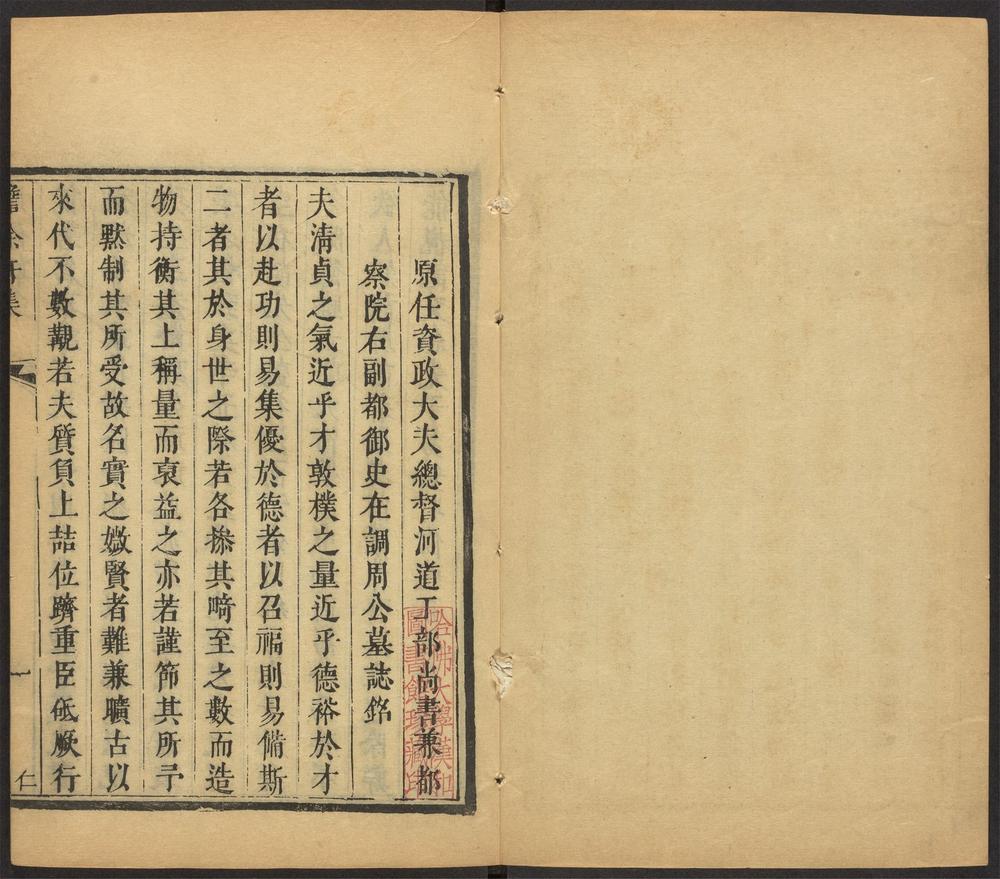 原任資政大夫總督河道工部尚書兼都
察院右副都御史在調周公墓誌銘
夫淸貞之氣近乎才敦樸之量近乎德裕於才
者以赴功則易集優於德者以召福則易備斯
二者其於身世之際若各摻其畸至之數而造
物持衡其上稱量而裒益之亦若謹節其所予
而默制其所受故名實之媺賢者難兼曠古以
來代不數觀若夫質負上喆位躋重臣砥厥行
集
一
仁
哈佛大學漢和
圖書館珍藏印